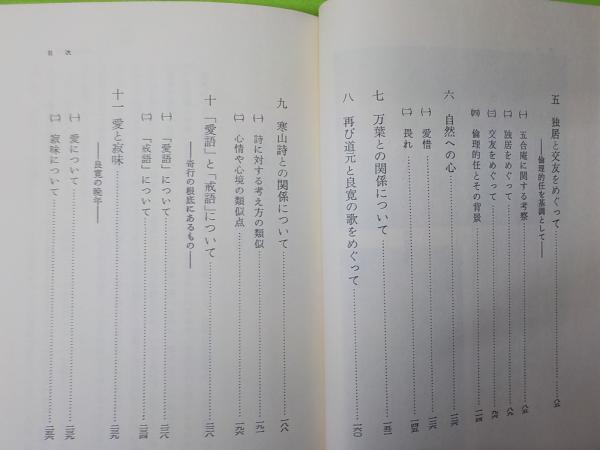 五 独居と交友をめぐって
――倫理的任を基調として――
㈠ 五合庵に関する考察
㈡ 独居をめぐって
㈢ 交友をめぐって
㈣ 倫理的任とその背景
六 自然への心
㈠ 愛惜
㈡ 畏れ
七 万葉との関係について
八 再び道元と良寛の歌をめぐって……一六〇
目次
九 寒山詩との関係について……一八八
㈠ 詩に対する考え方の類似……一九一
㈡ 心情や心境の類似点……一九六
十 「愛語」と「戒語」について……二二八
――奇行の根底にあるもの――
㈠ 「愛語」について……二二八
㈡ 「戒語」について……二三四
十一 愛と寂味……二三九
――良寛の晩年――
㈠ 愛について……二三九
㈡ 寂味について……二五六